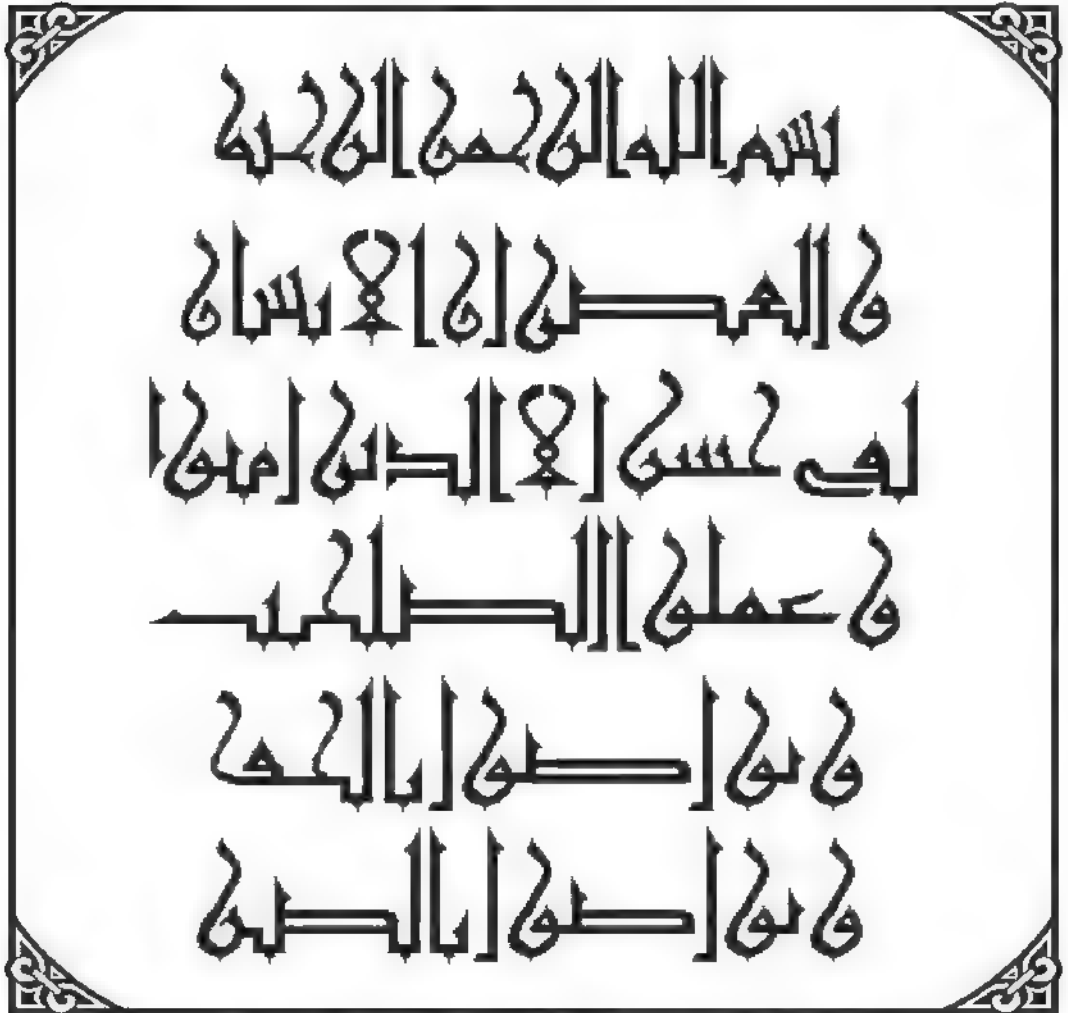 بسم الله الرحمن الرحيم
والعصر إن الإنسان
لفي خسر إلا الذين آمنوا
وعملوا الصلحت
وتواصوا بالحق
وتواصوا بالصبر